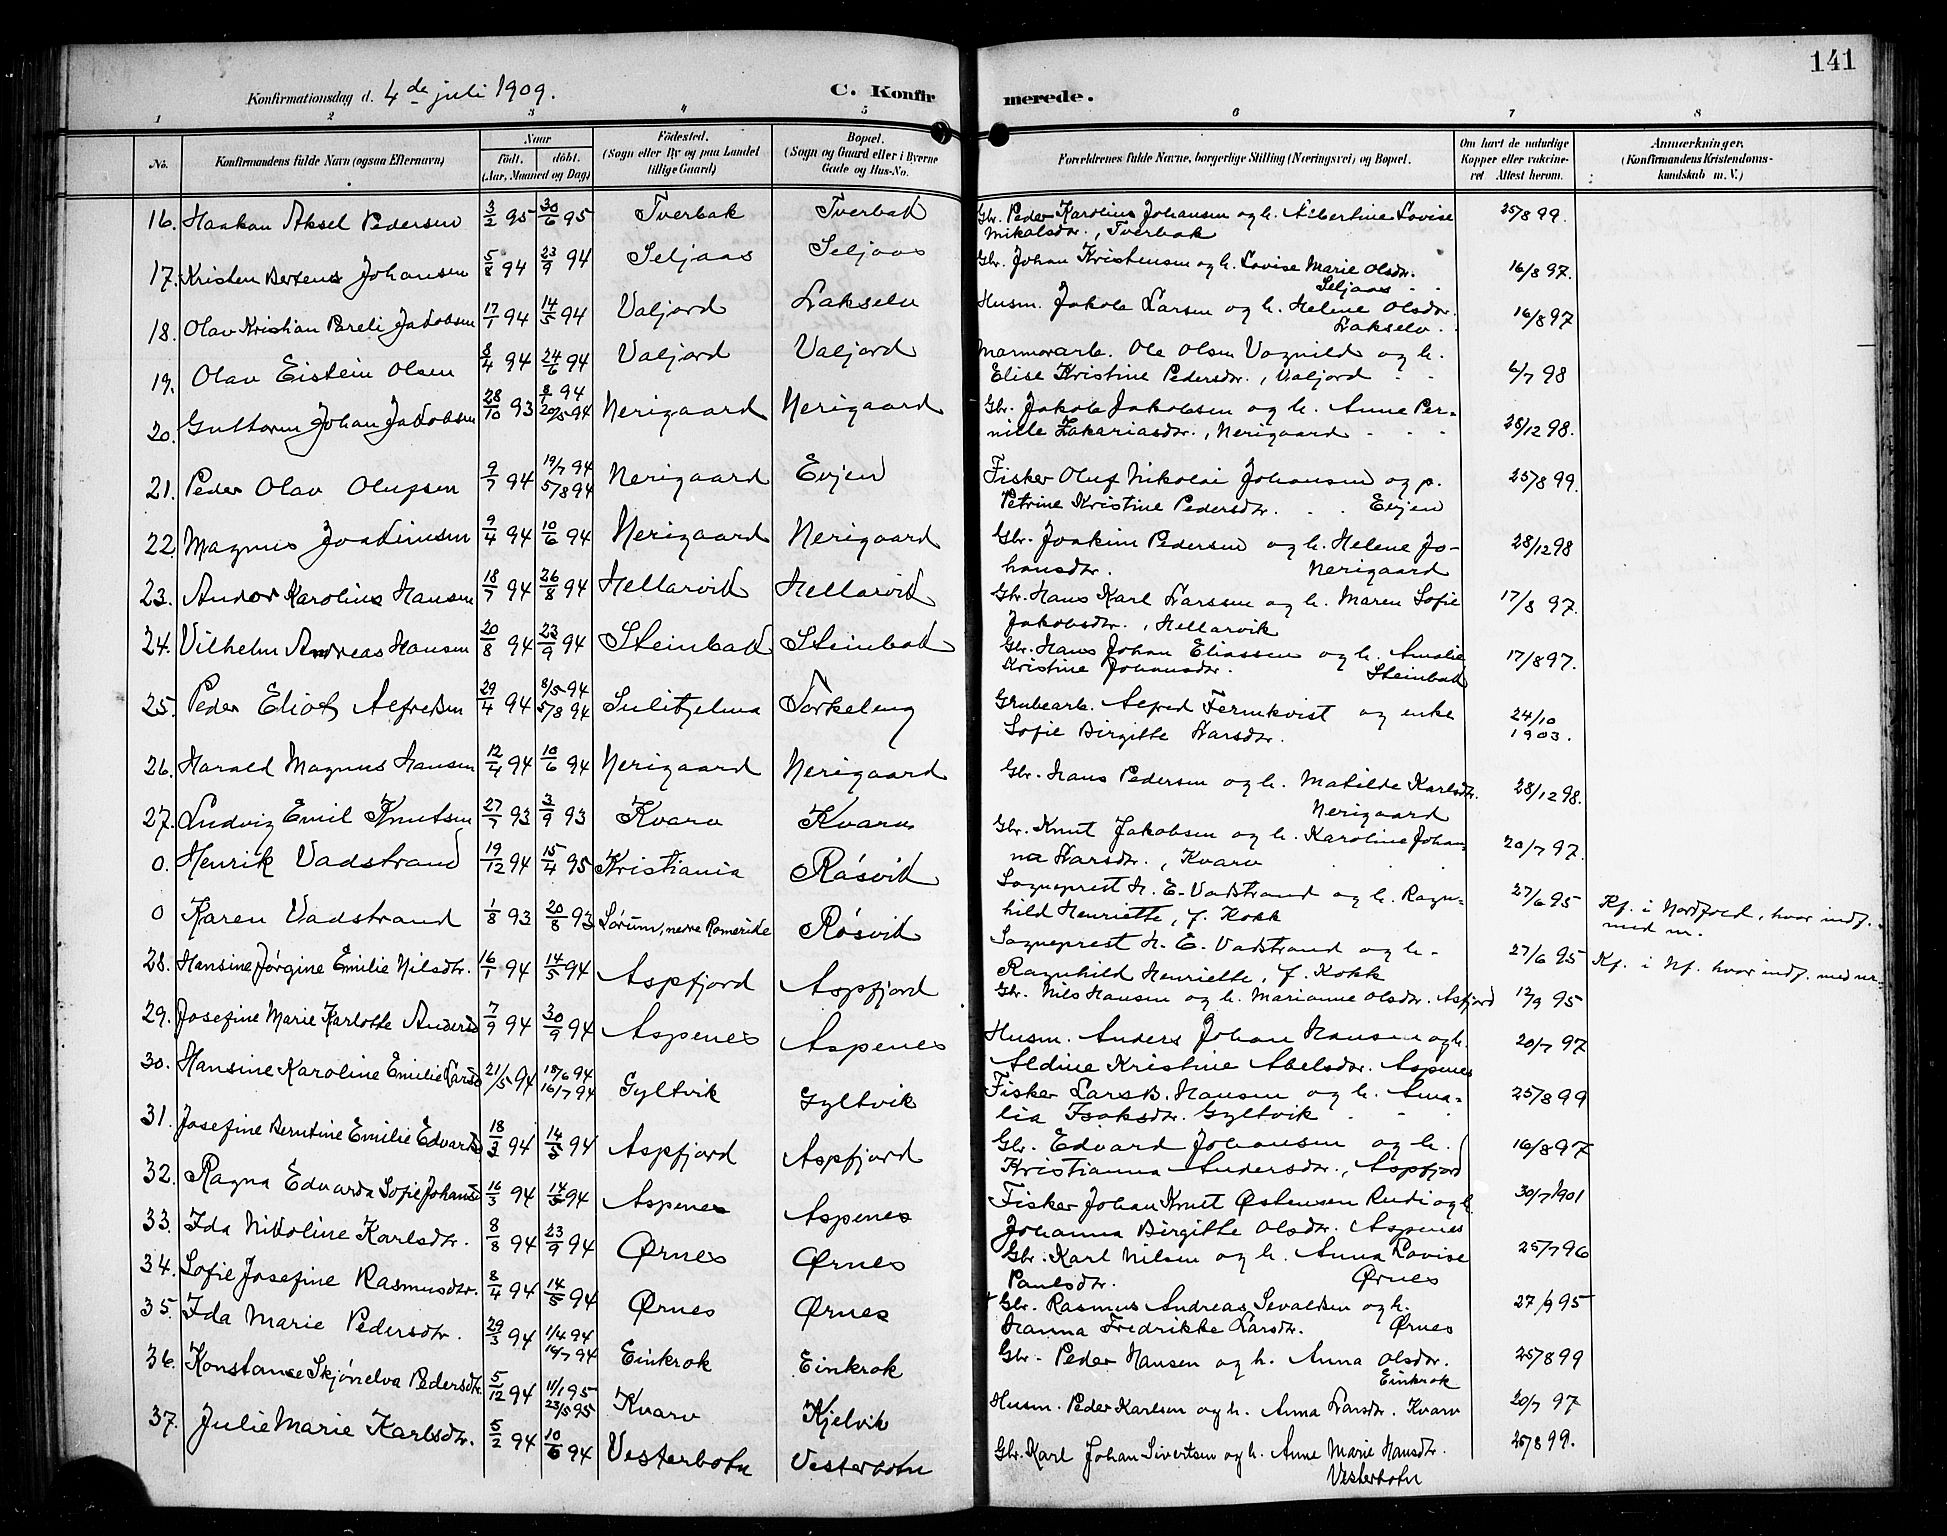 141
Konfirmationsdag d. 4de juli 1909.
C. Konfirmerede.
1 2 3 4 5 6 7 8
No.
Konfirmandens fulde Navn (ogsaa Efternavn)
Naar
født. døbt.
(Aar, Maaned og Dag)
Fødested.
(Sogn eller By og paa Landet
tillige Gaard)
Bopæl.
(Sogn og Gaard eller i Byerne
Gade og Hus-No.
Forældrenes fulde Navne, borgerlige Stilling (Næringsvei) og Bopæl.
Om havt de naturlige
Kopper eller vaccine-
ret Attest herom.
Anmærkninger.
(Konfirmandens Kristendoms-
kundskab m. V.)
16. Haakon Aksel Pedersen 3/2 95 30/6 95 Tverbak Tverbak Gbr. Peder Karolius Johansen og h. Albertine Lovise 25/8 99.
Mikalsdtr., Tverbak
17. Kristen Bertens Johansen 5/8 94 23/9 94 Seljaas Seljaas Gbr. Johan Kristensen og h. Lovise Marie Olsdtr. 16/8 97.
Seljaas
18. Olav Kristian Pareli Jakobsen 17/1 94 14/5 94 Valjord Lakselv Husm. Jakob Larsen og h. Helene Olsdtr. 16/8 97
Lakselv
19. Olav Eistein Olsen 8/4 94 24/6 94 Valjord Valjord Marmorarb. Ole Olsen Vognild og h.
Elise Kristine Pedersdtr., Valjord 6/7 98
20. Guttorm Johan Jakobsen 28/10 93 8/1 94 20/5 94 Nerigaard Nerigaard Gbr. Jakob Jakobsen og h. Anne Per-
nille Zakariasdtr., Nerigaard 28/12 98.
21. Peder Olav Olufsen 9/7 94 19/7 94 5/8 94 Nerigaard Evjen Fisker Oluf Nikolai Johansen og p. 25/8 99.
Petrine Kristine Pedersdtr. Evjen
22. Magnus Joakimsen 9/4 94 10/6 94 Nerigaard Nerigaard Gbr. Joakim Pedersen og h. Helene Jo- 28/12 98
hansdtr. Nerigaard
23. Andor Karolius Hansen 18/7 94 26/8 94 Hellarvik Hellarvik Gbr. Hans Karl Larssen og h. Maren Sofie 17/8 97.
Jakobsdtr., Hellarvik
24. Vilhelm Andreas Hansen 20/8 94 23/9 94 Steinbakk Steinbakk Gbr. Hans Johan Eliassen og h. Amalie 17/8 97.
Kristine Johansdtr. Steinbakk
25. Peder Eliot Alfredsen 29/4 94 8/5 94 5/8 94 Sulitjelma Torkeleng Grubearb. Alfred Fernkvist og enke 24/10
Sofie Birgitte Larsdtr. 1903.
26. Harald Magnus Hansen 12/4 94 10/6 94 Nerigaard Nerigaard Gbr. Hans Pedersen og h. Matilde Karlsdtr. 28/12 98.
Nerigaard
27. Ludvig Emil Knutsen 27/7 93 3/9 93 Kvarv Kvarv Gbr. Knut Jakobsen og h. Karoline Johan- 20/7 97.
na Larsdtr., Kvarv
0. Henrik Vadstrand 19/12 94 15/4 95 Kristiania Røsvik Sogneprest H. E. Vadstrand og h. Ragn- 27/6 95 Kf. i Nordfold, hvor indf.
hild Henriette, f. Kokk med nr.
0 Karen Vadstrand 1/8 93 20/8 93 Sørum, nedre Romerike Røsvik Sogneprest H. E. Vadstrand og h. 27/6 95 Kf. i Nf. hvor indf. med nr.
Ragnhild Henriette, f. Kokk
28. Hansine Jørgine Emilie Nilsdtr. 16/1 94 14/5 94 Aspfjord Aspfjord Gbr. Nils Hansen og h. Marianne Olsdtr. Asfjord 12/9 95
29. Josefine Marie Karlotte Andersd 7/9 94 30/9 94 Aspenes Aspenes Husm. Anders Johan Hansen og h. 20/7 97
Aldine Kristine Abelsdtr. Aspenes
30. Hansine Karoline Emilie Larsd 21/5 94 18/6 94 16/7 94 Gyltvik Gyltvik Fisker Lars B. Hansen og h. Ama- 25/8 99
lia Isaksdtr. Gyltvik
31. Josefine Berntine Emilie Edvardsd 18/3 94 14/5 94 Aspfjord Aspfjord Gbr. Edvard Johansen og h. 16/8 97
Kristianna Andersdtr., Aspfjord
32. Ragna Edvarda Sofie Johansd 16/3 94 14/5 94 Aspenes Aspenes Fisker Johan Knut Østensen Rudi og h. 30/7 1901
Johanna Birgitte Olsdtr. Aspenes
33. Ida Nikoline Karlsdtr. 8/8 94 23/9 94 Ørnes Ørnes Gbr. Karl Nilsen og h. Anna Lovise 25/7 96
Paulsdtr. Ørnes
34. Sofie Josefine Rasmusdtr. 8/4 94 14/5 94 Ørnes Ørnes Gbr. Rasmus Andreas Sevaldsen og h. 27/9 95
Hanna Fredrikke Larsdtr. Ørnes
35. Ida Marie Pedersdtr. 29/3 94 1/4 94 16/7 94 Einkrok Einkrok Gbr. Peder Hansen og h. Anna Olsdtr. 25/8 99
Einkrok
36. Konstance Skjønelva Pedersdtr. 5/12 94 11/1 95 23/5 95 Kvarv Kjelvik Husm. Peder Karlsen og h. Anna Larsdtr. Kvarv 20/7 97
37. Julie Marie Karlsdtr. 5/2 94 10/6 94 Vesterbotn Vesterbotn Gbr. Karl Johan Sivertsen og h. Anne Marie Hansdtr. 25/8 99.
Vesterbotn